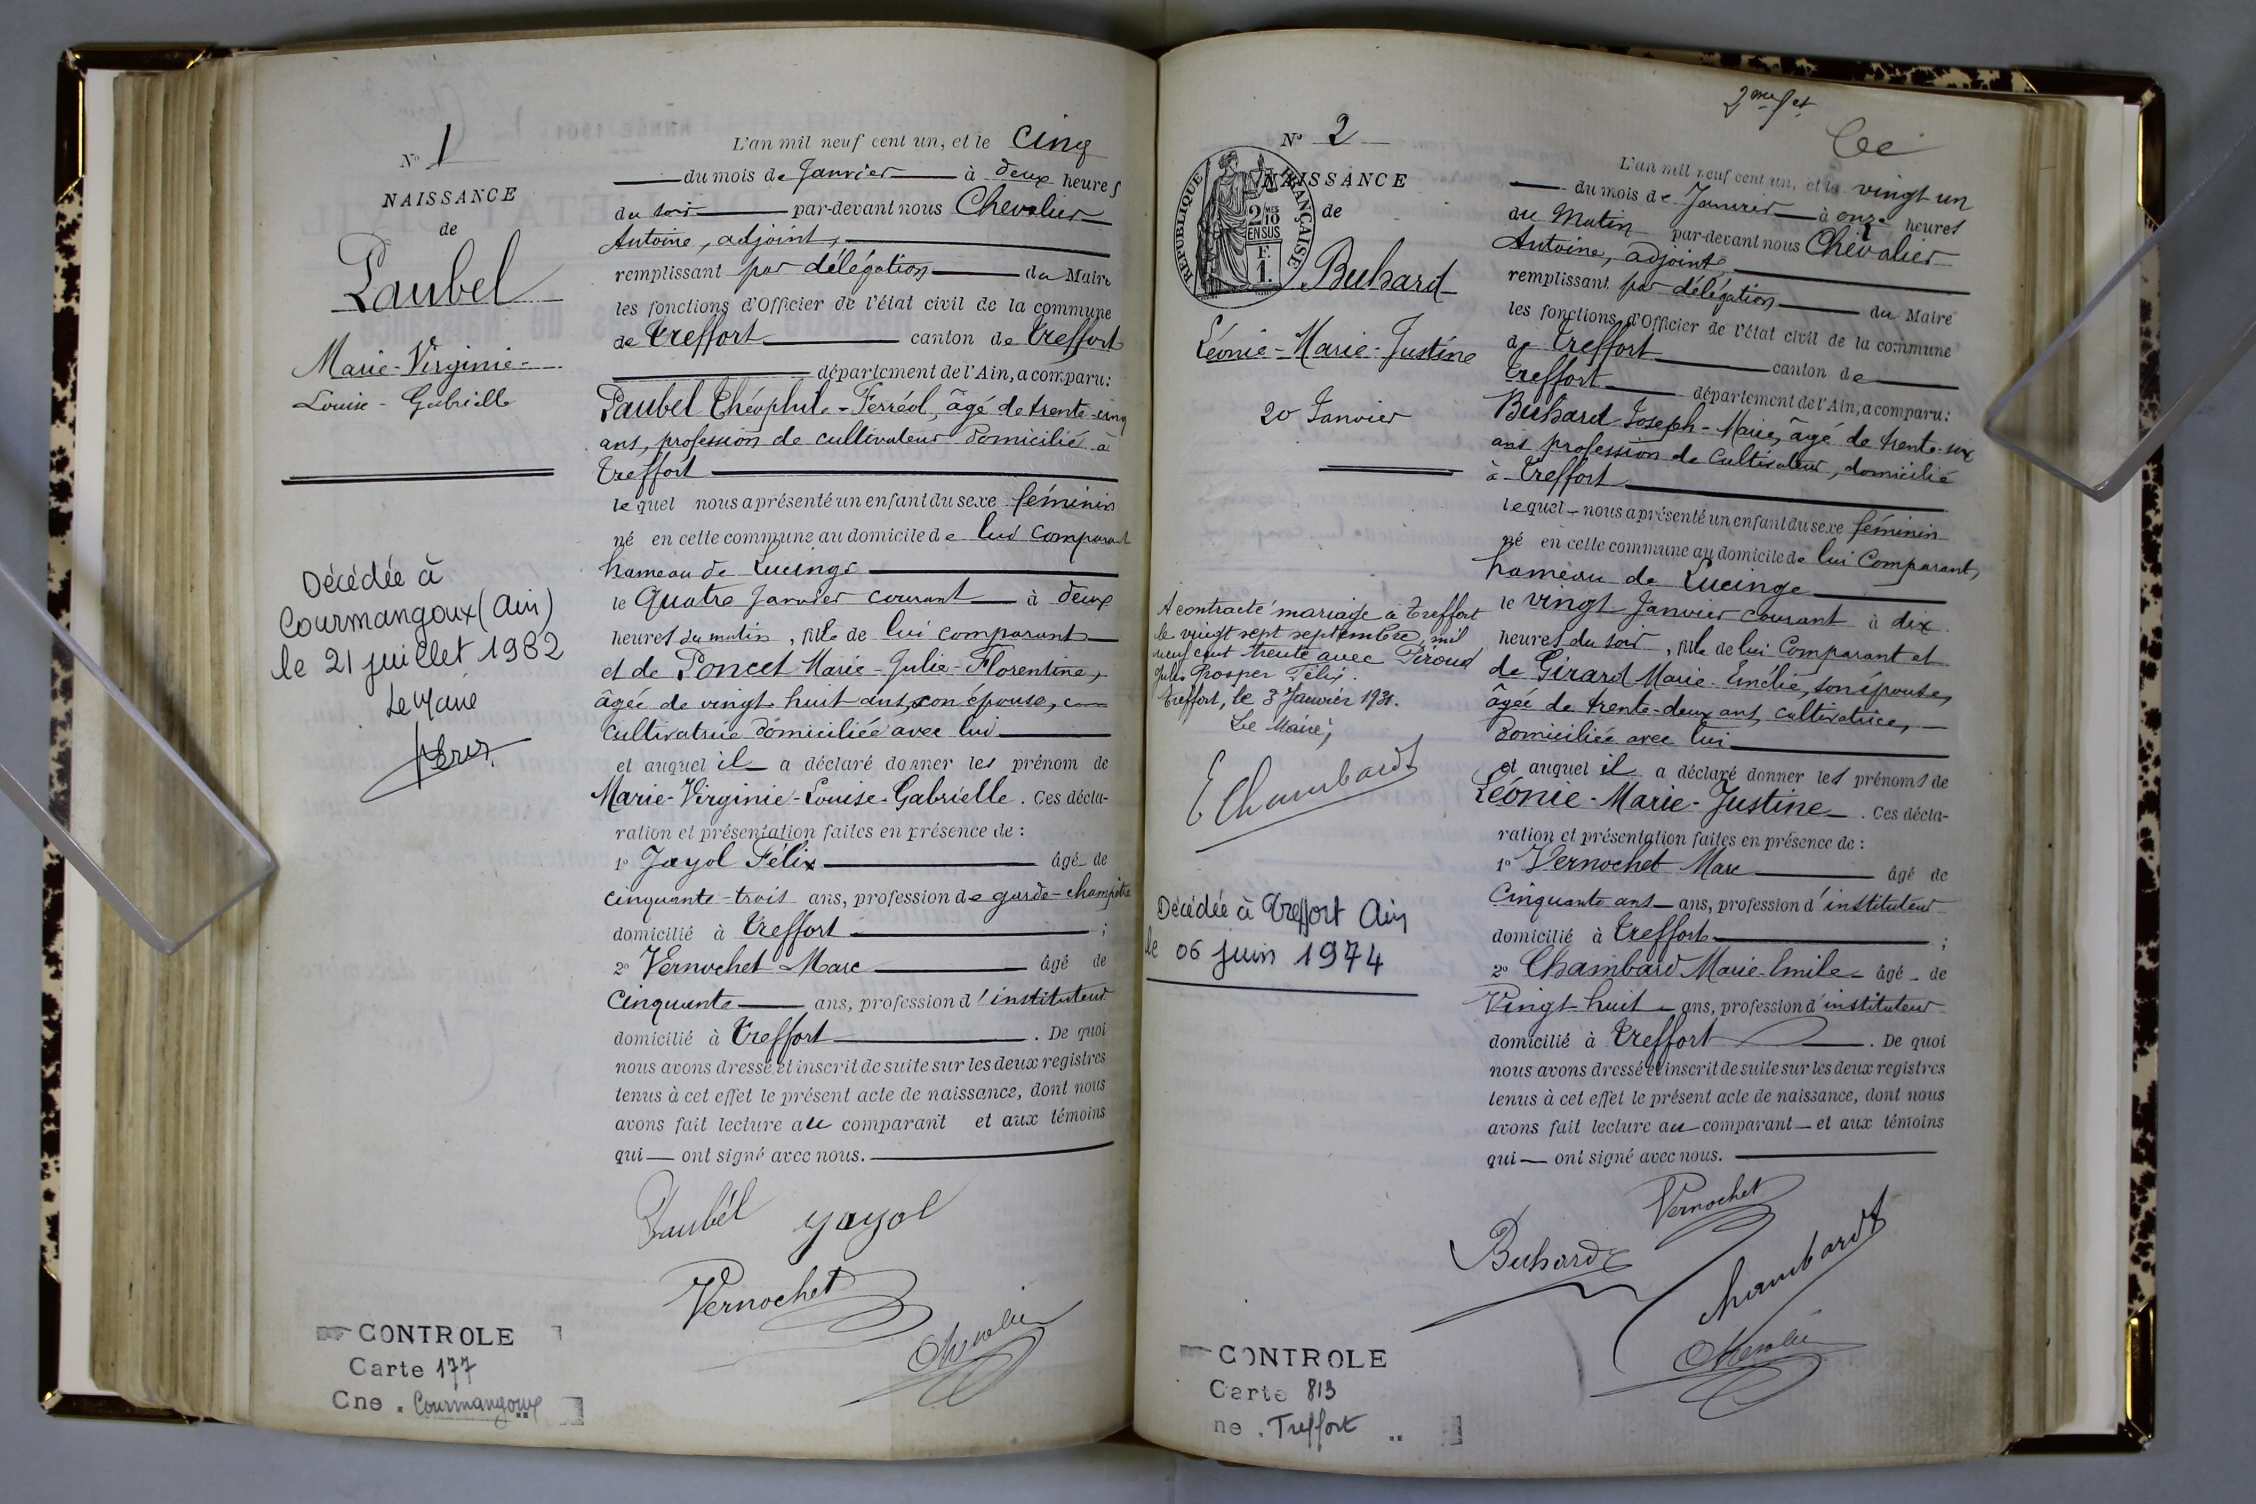 N° 1
NAISSANCE
de
Paubel
Marie-Virginie-
Louise-Gabrielle
Décédée à
Courmangoux (Ain)
le 21 juillet 1982
Le Maire
CONTROLE
Carte 177
Cne. Courmangoux
L'an mil neuf cent un, et le cinq
du mois de Janvier à deux heures
du soir par-devant nous Chevalier
Antoine, adjoint,
remplissant par délégation du Maire
les fonctions d'Officier de l'état civil de la commune
de Treffort canton de Treffort
département de l'Ain, a comparu:
Paubel Théophile-Ferréol, âgé de trente-cinq
ans, profession de cultivateur domicilié à
Treffort
lequel nous a présenté un enfant du sexe féminin
né en cette commune au domicile de lui comparant
hameau de Lucinge
le Quatre Janvier courant à deux
heures du matin, fille de lui comparant
et de Poncet Marie-Julie-Florentine,
âgée de vingt huit ans, son épouse,
cultivatrice domiciliée avec lui
et auquel il a déclaré donner les prénom de
Marie-Virginie-Louise-Gabrielle. Ces décla-
ration et présentation faites en présence de:
1° Jayol Félix âgé de
cinquante-trois ans, profession de garde-champêtre
domicilié à Treffort;
2° Vernochet Marc âgé de
Cinquante ans, profession d'instituteur
domicilié à Treffort. De quoi
nous avons dressé et inscrit de suite sur les deux registres
tenus à cet effet le présent acte de naissance, dont nous
avons fait lecture au comparant et aux témoins
qui ont signé avec nous.
Paubel Jayol
Vernochet
Chevalier
N° 2
NAISSANCE
de
RÉPUBLIQUE FRANÇAISE
2/10 MES
EN SUS
F.
1.
Buhard
Léonie-Marie-Justine
20 Janvier
A contracté mariage à Treffort
le vingt sept septembre mil
neuf cent trente avec Piroud
Jules Prosper Félix.
Treffort, le 3 Janvier 1931.
Le Maire,
E Chambardt
Décédée à Treffort Ain
le 06 juin 1974
CONTROLE
Carte 813
ne. Treffort
L'an mil neuf cent un, et le vingt un
du mois de Janvier à onze heures
du Matin par-devant nous Chevalier
Antoine, adjoint,
remplissant par délégation du Maire
les fonctions d'Officier de l'état civil de la commune
de Treffort canton de
Treffort département de l'Ain, a comparu:
Buhard Joseph-Marie, âgé de trente-six
ans profession de Cultivateur, domicilié
à Treffort
lequel nous a présenté un enfant du sexe féminin
né en cette commune au domicile de lui Comparant,
hameau de Lucinge
le vingt Janvier courant à dix
heures du soir, fille de lui Comparant et
de Girard Marie-Emélie, son épouse,
âgée de trente-deux ans, cultivatrice,
domiciliée avec lui
et auquel il a déclaré donner les prénoms de
Léonie-Marie-Justine. Ces décla-
ration et présentation faites en présence de:
1° Vernochet Marc âgé de
Cinquante ans ans, profession d'instituteur
domicilié à Treffort;
2° Chambard Marie-Emile âgé de
Vingt huit ans, profession d'instituteur
domicilié à Treffort. De quoi
nous avons dressé et inscrit de suite sur les deux registres
tenus à cet effet le présent acte de naissance, dont nous
avons fait lecture au comparant et aux témoins
qui ont signé avec nous.
Vernochet
Buhard
Chambardt
Chevalier